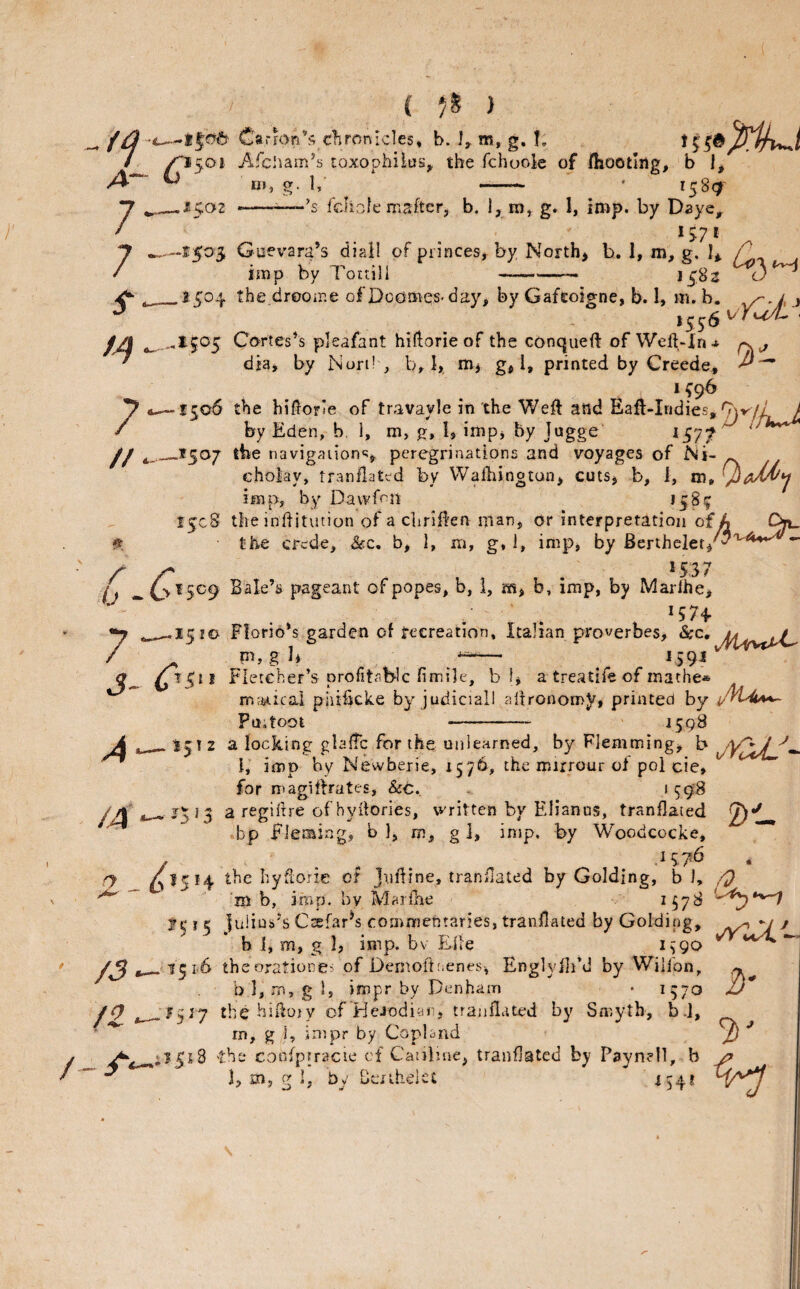 ( 78 )
19 — 1500 Carion's chronicles, b. l, m, g. l. 1550
A— 6 1501 Aſcham's toxophilus, the ſchoole of ſhooting, b l,
m, g. l, —— 1589
7 — 1502 ———'s ſchole maſter, b. l, m, g. l, imp. by Daye,
1571
7 — 1503 Guevara's diall of princes, by North, b. l, m, g. l,
imp by Tottill ——— 1582
5 — 1504 the droome of Doomes-day, by Gaſcoigne, b. l, m. b.
1556
14 — 1505 Cortes's pleaſant hiſtorie of the conqueſt of Weſt-In-
dia, by Norl , b, l, m, g, l, printed by Creede,
1596
7 — 1506 the hiſtorie of travayle in the Weſt and Eaſt-Indies,
by Eden, b. l, m, g, l, imp, by Jugge 1577
11 — 1507 the navigations, peregrinations and voyages of Ni-
cholay, tranſlated by Waſhington, cuts, b, l, m,
imp, by Dawſon 1585
1508 the inſtitution of a chriſten man, or interpretation of
the crede, &c. b, l, m, g, l, imp, by Berthelet,
1537
6 - 6 1509 Bale's pageant of popes, b, l, m, b, imp, by Marſhe,
1574
7 — 1510 Florio's garden of recreation, Italian proverbes, &c.
m, g l, —— 1591
3 - 6 1511 Fletcher's profitable ſimile, b l, a treatiſe of mathe-
matical phiſicke by judiciall aſtronomy, printed by
Purfoot ——— 1598
4 — 1512 a locking glaſſe for the unlearned, by Flemming, b
l, imp by Newberie, 1576, the mirrour of pol cie,
for magiſtrates, &c. 1598
14 — 1513 a regiſtre of hyſtories, written by Elianus, tranſlated
bp Fleming, b l, m, g l, imp. by Woodcocke,
1576
2 - 6 1514 the hyſtorie of Juſtine, tranſlated by Golding, b l,
m b, imp. by Marſhe 1578
1515 Julius's Cæſar's commentaries, tranſlated by Golding,
b l, m, g l, imp. by Eſte 1590
13 — 1516 the orationes of Demoſthenes, Englyſh'd by Wilſon,
b l, m, g l, impr by Denham 1570
12 — 1517 the hiſtory of Herodian, tranſlated by Smyth, b l,
m, g l, impr by Copland
1 - 5 — 1518 the conſpiracie of Catiline, tranſlated by Paynell, b
l, m, g l, by Berthelet 1541